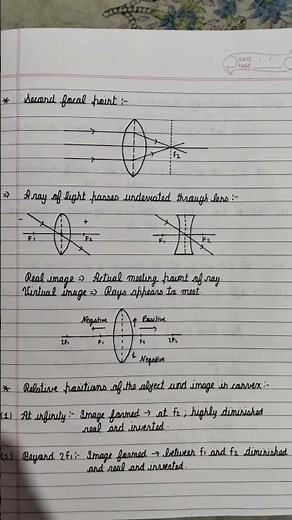 DATE / /
PAGE
* Second focal point :-
F₂
⇒ A ray of light passes undeviated through lens :-
- +
F₁ F₂ F₁ F₂
Real image ⇒ Actual meeting point of ray
Virtual image ⇒ Rays appears to meet
Negative Positive
2F₁ F₁ F₂ 2F₂
Negative
* Relative positions of the object and image in convex :-
(1) At infinity :- Image formed → at F₂ ; highly diminished
real and inverted.
(2) Beyond 2F₁ :- Image formed → between F₁ and F₂ diminished
and real and inverted.